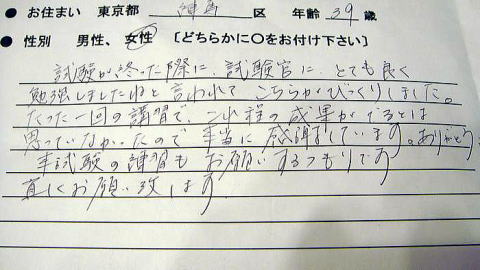 ● お住まい 東京都 練馬 区 年齢 39 歳
● 性別 男性、女性 〔どちらかに〇をお付け下さい〕
試験が終った際に、試験官に、とても良く
勉強しましたねと言われて こちらがびっくりしました。
たった一回の講習で、これ程の成果がでるとは
思っていなかったので 本当に感謝しています。ありがとう
本試験の講習も お願いするつもりです
宜しくお願い致します